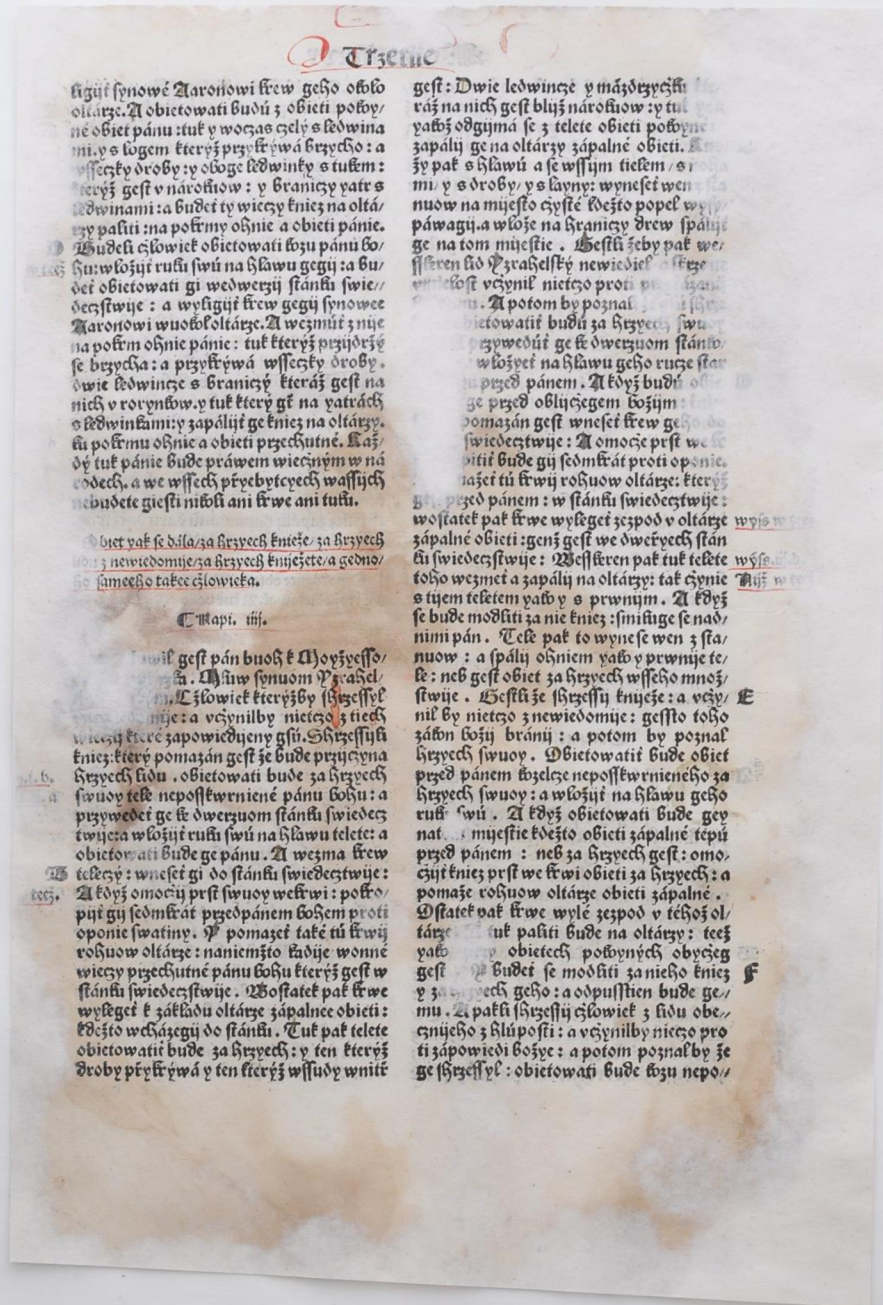 Trzetie
ligijť synowé Aaronowi krew geho okolo
oltarze. A obietowati budú z obieti pokoy/
né obiet pánu : tuk y woczas czelý s ledwina
mi. y s logem kteryž przykrýwá brzycho : a
wsseczky droby : y oboge ledwinky s tukem :
kterýž gest v nárokuow : y braniczy yatr s
ledwinami : a budeť ty wieczy kniez na oltá/
rzy paliti : na pokrmy ohnie a obieti pánie.
Budeli czlowiek obietowati kozu pánu bo/
hu: wložijť ruku swú na hlawu gegij : a bu/
deť obietowati gi wedwerzij stánku swie//
deczstwije : a wyligijť krew gegij synowee
Aaronowi wuokol oltárze. A wezmúť z nije
na pokrm ohnie pánie : tuk kterýž przijdržý
se brzycha : a przykrýwá wsseczky droby.
dwie ledwincze s braniczý kteráž gest na
nich v rorynkow. y tuk který gt na yatrách
s ledwinkami: y zapálijť ge kniez na oltárzy.
ku pokrmu ohnie a obieti przechutné. Kaž/
dý tuk pánie bude práwem wiecznym w ná
rodech. a we wssech přyebytcyech wassijch
nebudete giesti nikoli ani krwe ani tuku.
Obiet yak se dála/za hrzyech knieže/za hrzyech
z newiedomije/za hrzyech kniježete/a gedno/
sameeho takee czlowieka.
Kapi. iiij.
gest pán buoh k Moyžyesso/
wi. Mluw synuom Yzrahel/
Czlowiek kteryžby shrzessyl
: a vczynilby nietczo z tiech
wieczij které zapowiedijeny gsú. Shrzessyli
kniez: který pomazán gest že bude przijczyna
hrzyech lidu . obietowati bude za hrzyech
swuoy tele neposskwrniené pánu bohu : a
przywedeť ge ke dwerzuom stánku swiedecz
twije: a wložijť ruku swú na hlawu telete: a
obietowati bude ge pánu. A wezma krew
teleczy : wneseť gi do stánku swiedecztwije :
A když omoczij prst swuoy wekrwi : pokro/
pijť gij sedmkrát przedpánem bohem proti
oponie swatiny. Y pomazeť také tú krwij
rohuow oltárze : naniemžto kadije wonné
wieczy przechutné pánu bohu kterýž gest w
stánku swiedeczstwije . Wostatek pak krwe
wylegeť k základu oltárze zápalnee obieti :
kdežto wcházegij do stánku. Tuk pak telete
obietowatiť bude za hrzyech : y ten kterýž
droby přykrýwá y ten kterýž wssudy wnitř
gest : Dwie ledwincze y mázdrzyczku
ráž na nich gest blijž nárokuow : y tu
yakož odgijmá se z telete obieti pokoyn
zapálij ge na oltárzy zápalné obieti.
žy pak s hlawú a se wssijm tielem /
mi/ y s droby/ y s layny: wyneseť wen
nuow na mijesto czysté kdežto popel
páwagij. a wlože na hraniczy drew spálij
ge na tom mijestie . Gestli žeby pak we/
ssseren lid Yzrahelský newiediel
vczynil nietczo proti
. A potom by poznal
obietowatiť budú za hrzyech swu
przywedúť ge ke dwerzuom stánk
wložyeť na hlawu geho rucze star
przed pánem . A když budú
ge przed oblijczegem božijm
pomazán gest wneseť krew ge
swiedecztwije : A omocze prst w
bude gij sedmkrát proti oponie.
tú krwij rohuow oltárze: kterýž
przed pánem : w stánku swiedecztwije :
wostatek pak krwe wylegeť zezpod v oltárze
zápalné obieti : genž gest we dweřych stán
ku swiedeczstwije : Wesskeren pak tuk telete
toho wezmeť a zapálij na oltárzy: tak czynie
s tijem teletem yako y s prwnijm . A když
se bude modliti za nie kniez : smiluge se nad/
nimi pán . Tele pak to wynese wen z sta/
nuow : a spálij ohniem yako y prwnije te/
le : neb gest obiet za hrzyech wsseho množ/
stwije . Gestli že shrzessij kniježe : a vczy/ E
nil by nietczo z newiedomije : gessto toho
zákon božij bránij : a potom by poznal
hrzyech swuoy . Obietowatiť bude obiet
przed pánem kozelcze neposskwrnieného za
hrzyech swuoy : a wložijť na hlawu geho
ruku swú . A když obietowati bude gey
nat mijestie kdežto obieti zápalné tepú
przed pánem : neb za hrzyech gest : omo/
czijť kniez prst we krwi obieti za hrzyech : a
pomaže rohuow oltárze obieti zápalné .
Ostatek pak krwe wylé zezpod v téhož ol/
tárze tuk paliti bude na oltárzy : teež
yako obietech pokoyných obyczeg
gest budeť se modliti za nieho kniez F
y z geho : a odpusstien bude ge//
mu. A pakli shrzessij czlowiek z lidu obe//
cznijeho z hlúposti : a vczynilby nieczo pro
ti zápowiedi božye : a potom poznalby že
ge shrzessyl : obietowati bude kozu nepo//